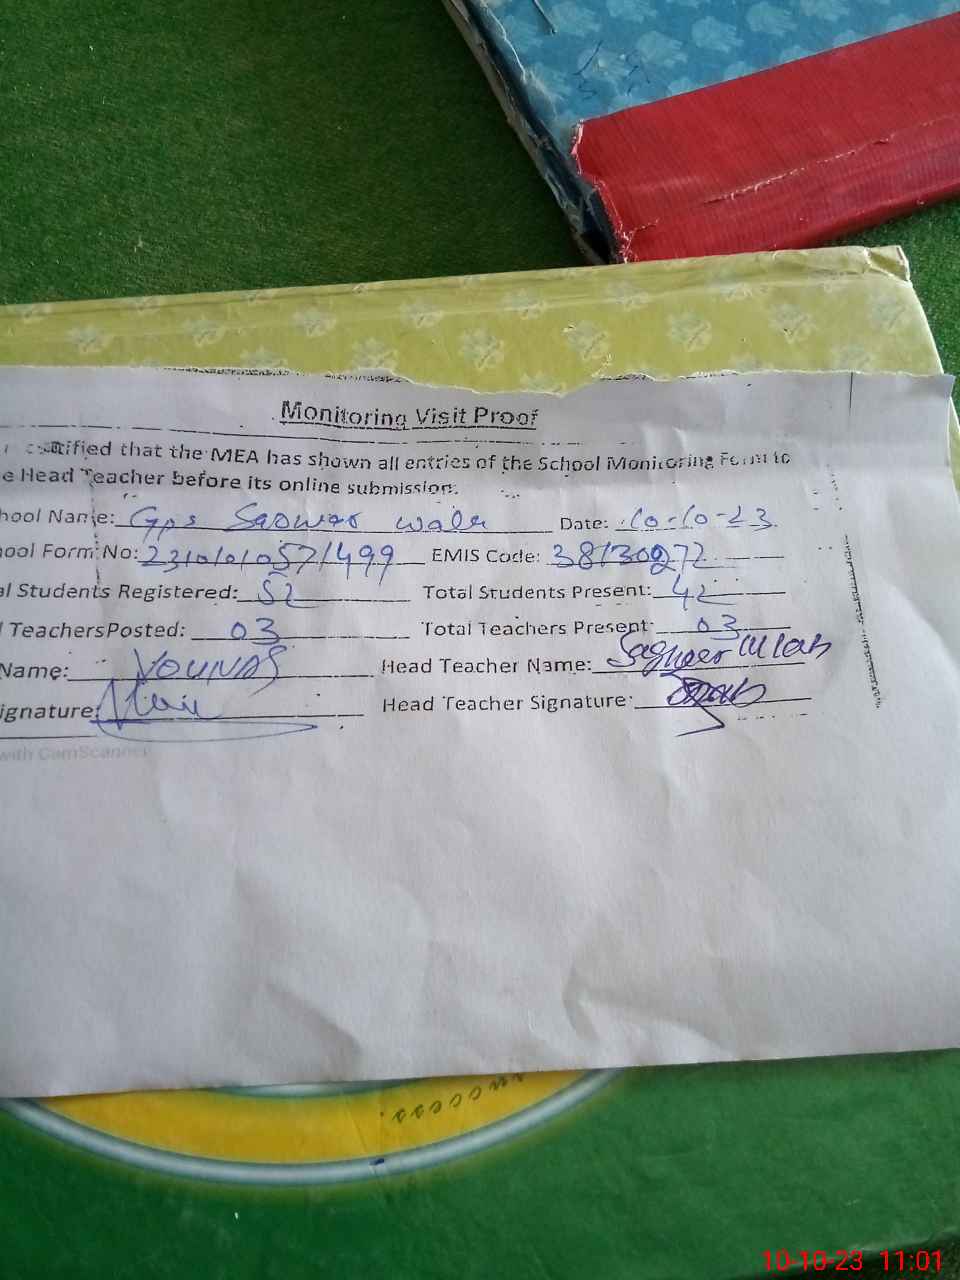 Monitoring Visit Proof
certified that the MEA has shown all entries of the School Monitoring Form to
e Head Teacher before its online submission.
hool Name: Gps Saowar wala Date: 10-10-23
ool Form No: 23101010571499 EMIS Code: 38130272
al Students Registered: 52 Total Students Present: 42
l TeachersPosted: 03 Total Teachers Present: 03
Name: YOUNAS Head Teacher Name: Sagheer Ullah
ignature: Head Teacher Signature:
with CamScanner
success.
10-10-23 11:01